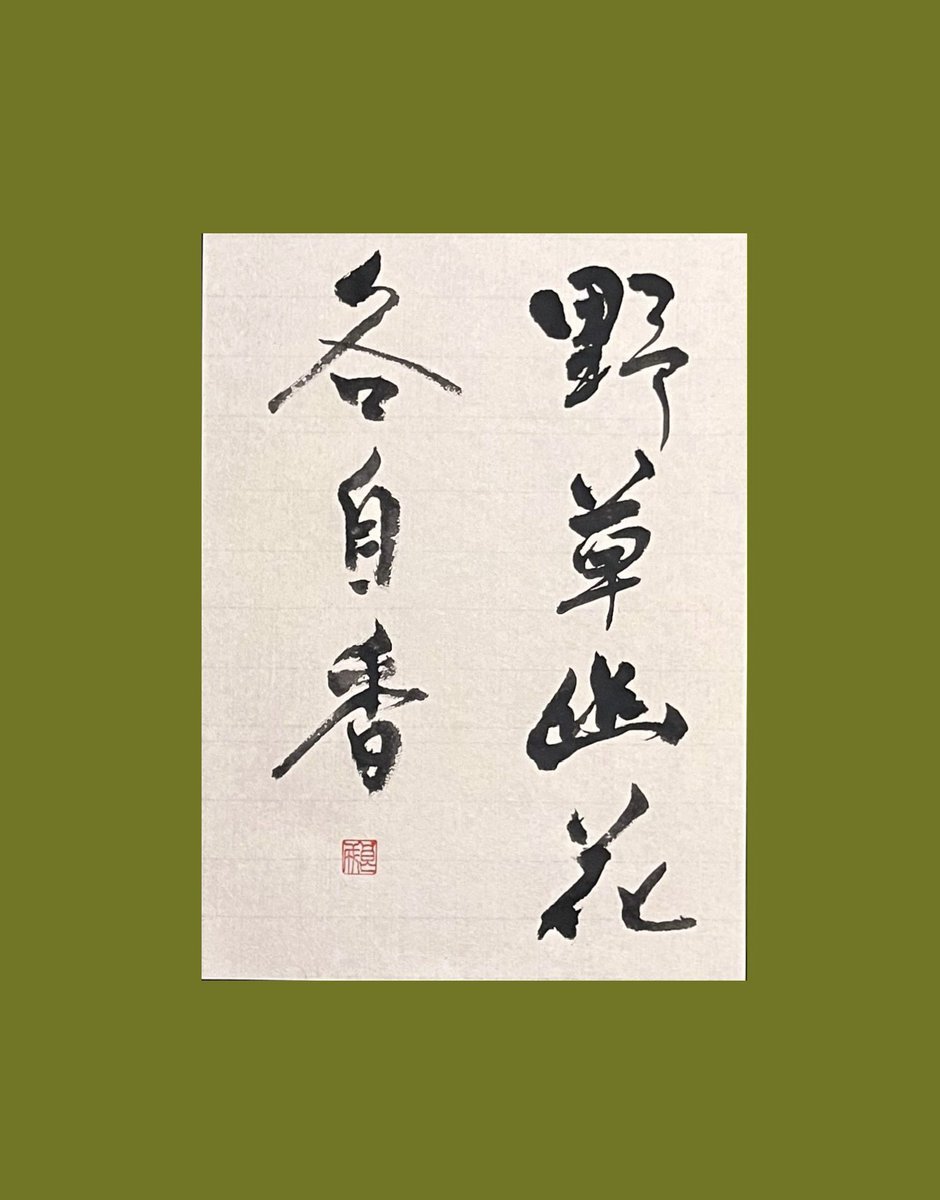 野草幽花
各自香